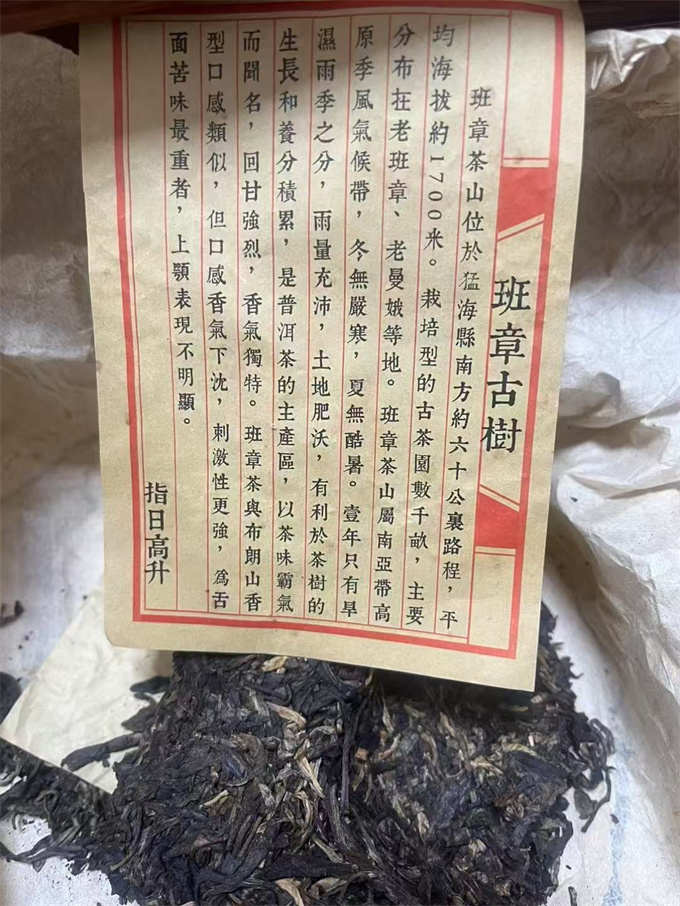 班章古樹
班章茶山位於猛海縣南方約六十公裏路程，平
均海拔約1700米。栽培型的古茶園數千畝，主要
分布在老班章、老曼娥等地。班章茶山屬南亞帶高
原季風氣候帶，冬無嚴寒，夏無酷暑。壹年只有旱
濕雨季之分，雨量充沛，土地肥沃，有利於茶樹的
生長和養分積累，是普洱茶的主產區，以茶味霸氣
而聞名，回甘強烈，香氣獨特。班章茶與布朗山香
型口感類似，但口感香氣下沈，刺激性更強，爲舌
面苦味最重者，上顎表現不明顯。
指日高升